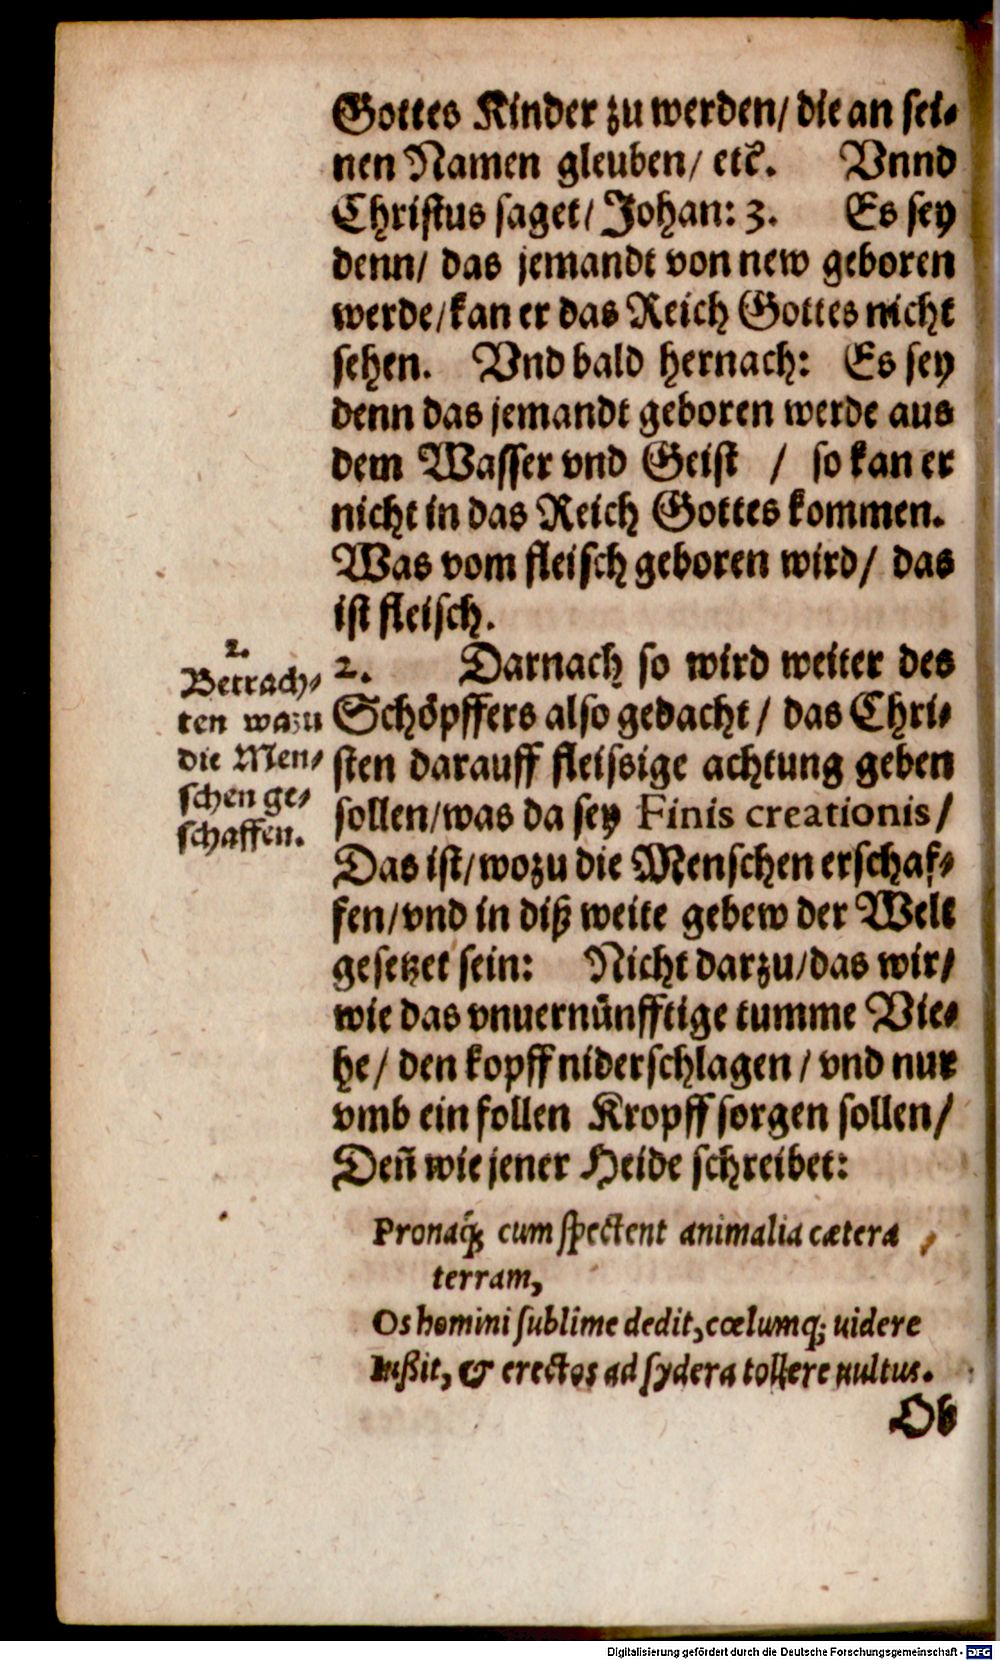 Gottes Kinder zu werden/ die an sei⸗
nen Namen gleuben/ etc̃. Vnnd
Christus saget/ Johan: 3. Es sey
denn/ das jemandt von new geboren
werde/ kan er das Reich Gottes nicht
sehen. Vnd bald hernach: Es sey
denn das jemandt geboren werde aus
dem Wasser vnd Geist / so kan er
nicht in das Reich Gottes kommen.
Was vom fleisch geboren wird/ das
ist fleisch.
2.
Betrach⸗
ten wazu
die Men⸗
schen ge⸗
schaffen.
2. Darnach so wird weiter des
Schöpffers also gedacht / das Chri⸗
sten darauff fleissige achtung geben
sollen/ was da sey Finis creationis /
Das ist/ wozu die Menschen erschaf⸗
fen/ vnd in diß weite gebew der Welt
gesetzet sein: Nicht darzu/ das wir/
wie das vnuernünfftige tumme Vie⸗
he/ den kopff niderschlagen / vnd nur
vmb ein follen Kropff sorgen sollen/
Deñ wie jener Heide schreibet:
Pronaq́; cum spectent animalia cætera
terram,
Os homini sublime dedit, cœlumq; uidere
Iußit, & erectos ad sydera tollere uultus.
Ob
Digitalisierung gefördert durch die Deutsche Forschungsgemeinschaft - DFG